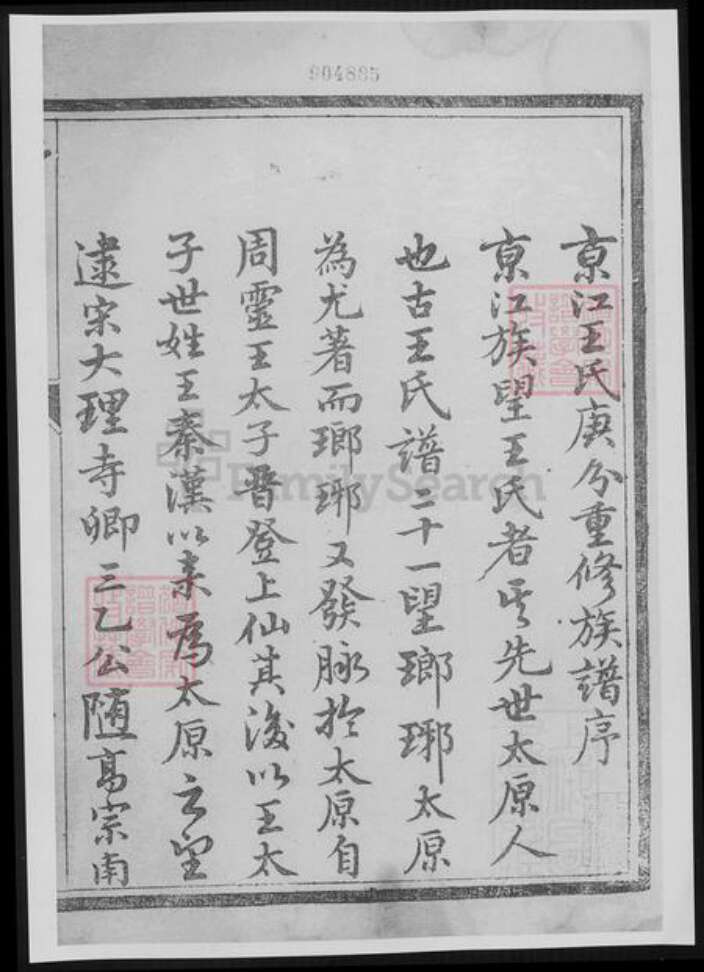 904885
京江王氏庚分重修族譜序
京江族望王氏者其先世太原人
也古王氏譜二十一望瑯琊太原
為尤著而瑯琊又發脉於太原自
周靈王太子晉登上仙其後以王太
子世姓王秦漢以來為太原之望
逮宋大理寺卿三乙公随高宗南
FamilySearch